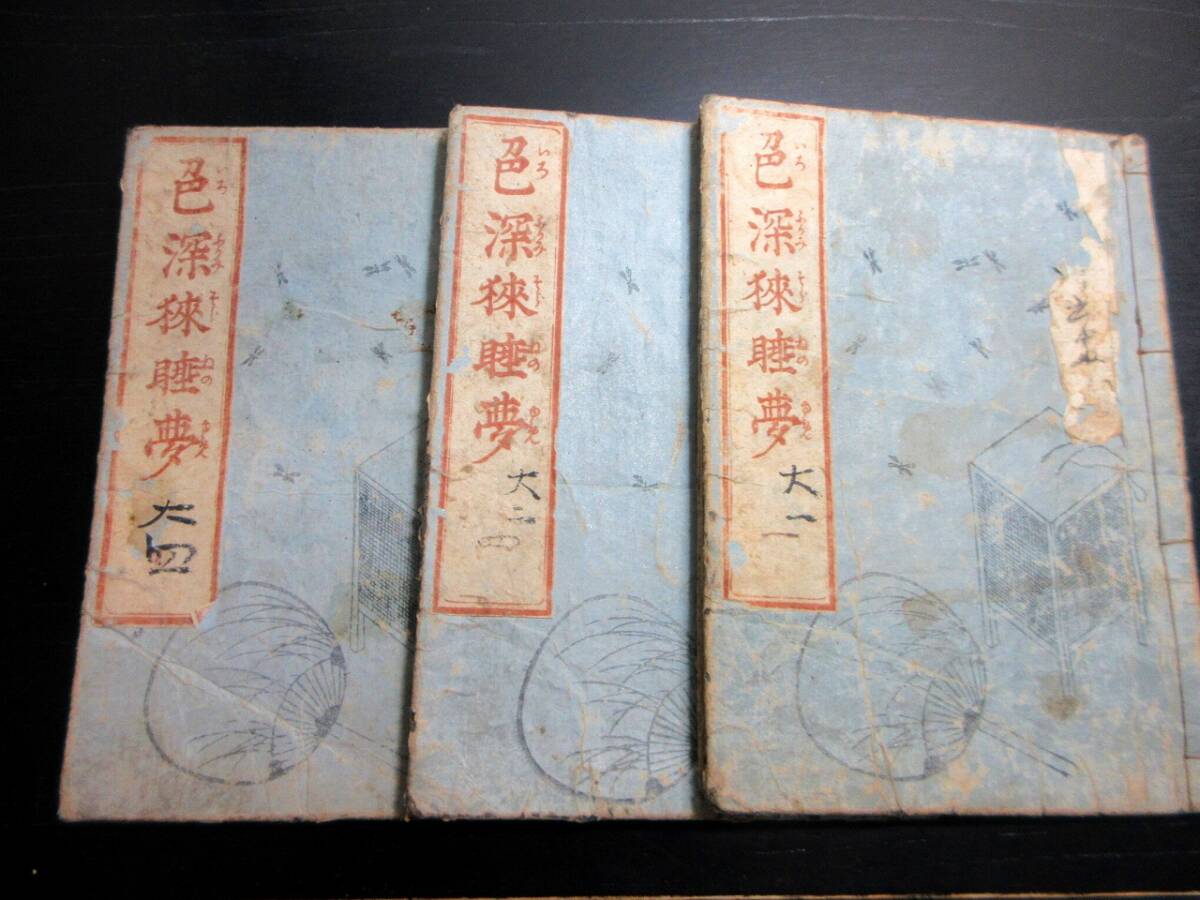 色深猍睡夢
いろ ふかみ ねの ゆめ
大一
色深猍睡夢
いろ ふかみ ねの ゆめ
大二
四
色深猍睡夢
いろ ふかみ ねの ゆめ
大四